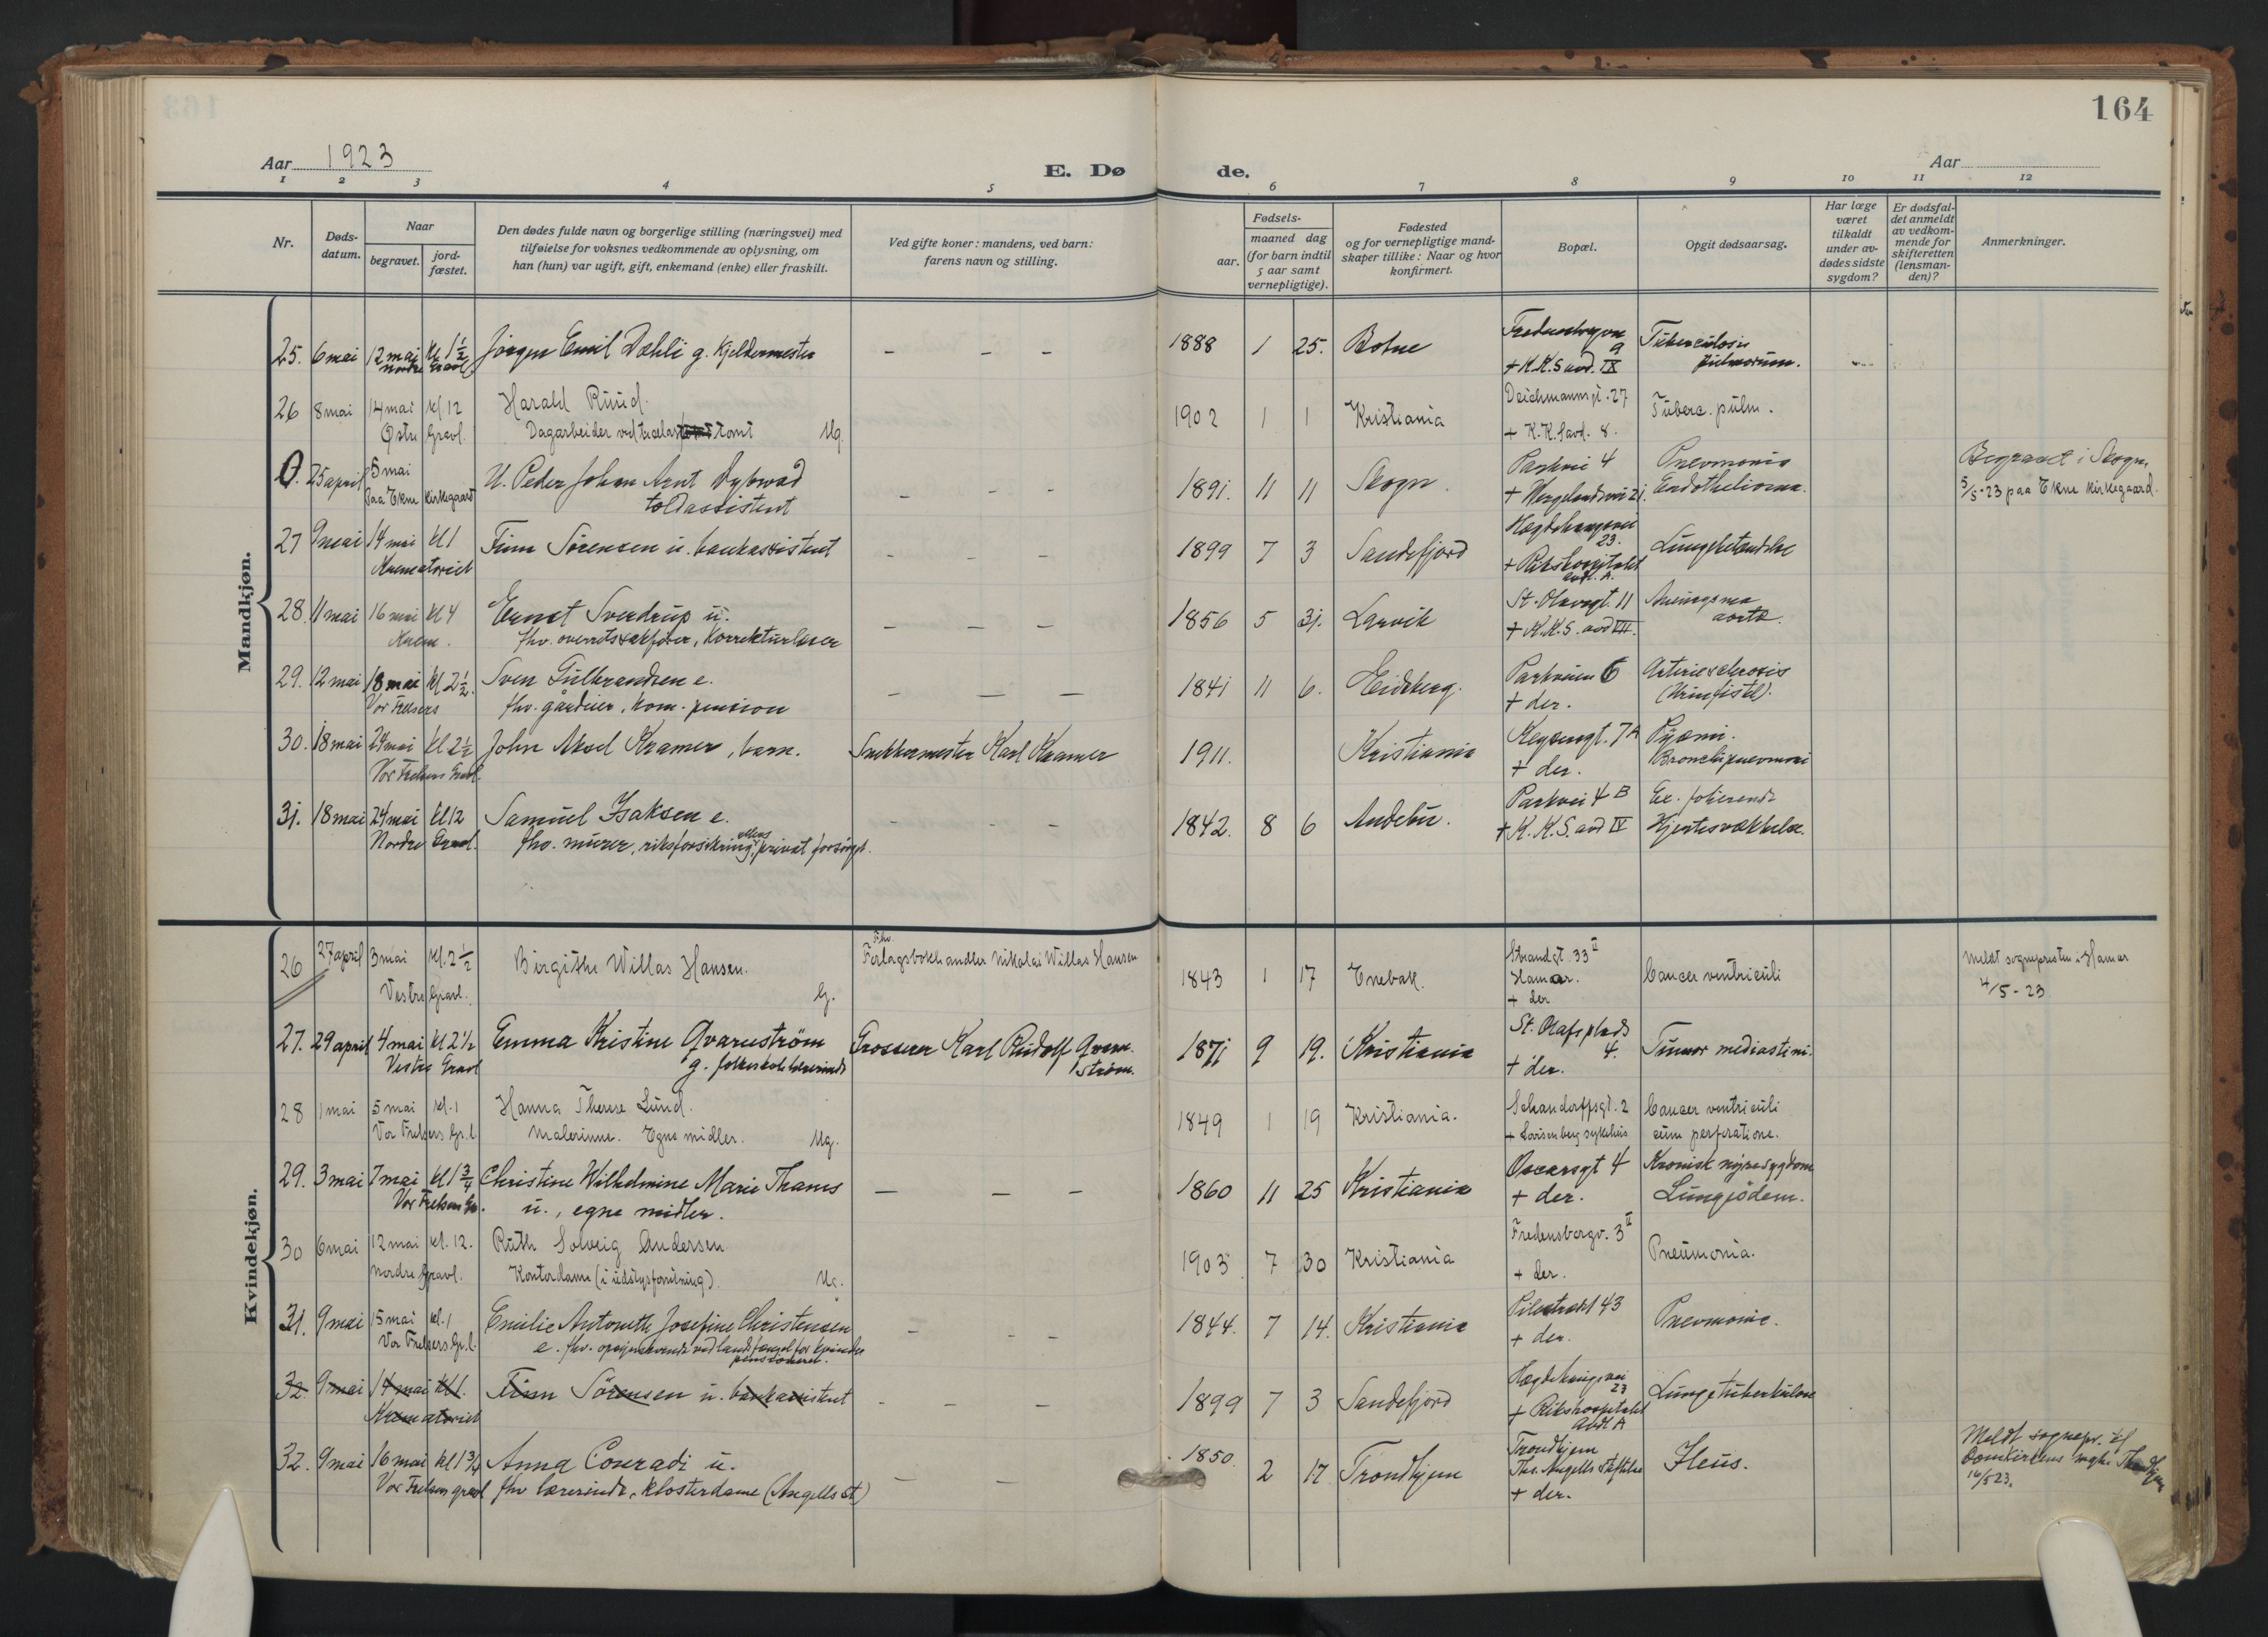 164
Aar 1923
E. Dø de.
Aar
1 2 3 4 5 6 7 8 9 10 11 12
Nr.
Døds-
datum.
Naar
begravet.
jord-
fæstet.
Den dødes fulde navn og borgerlige stilling (næringsvei) med
tilføielse for voksnes vedkommende av oplysning, om
han (hun) var ugift, gift, enkemand (enke) eller fraskilt.
Ved gifte koner: mandens, ved barn:
farens navn og stilling.
Fødsels-
aar.
maaned dag
(for barn indtil
5 aar samt
vernepligtige).
Fødested
og for vernepligtige mand-
skaper tillike: Naar og hvor
konfirmert.
Bopæl.
Opgit dødsaarsag.
Har læge
været
tilkaldt
under av-
dødes sidste
sygdom?
Er dødsfal-
det anmeldt
av vedkom-
mende for
skifteretten
(lensman-
den)?
Anmerkninger.
Mandkjøn.
25. 6 mai 12 mai kl 1½ Jørgen Emil Dæhli g. Kjeldermester — — — 1888 1 25. Botne 9 Tuberculosis
Nordre Gravl. + K.K.S avd. IX pulmorum.
26 8 mai 14 mai kl. 12 Harald Ruud. 1902 1 1 Kristiania Deichmannsgt. 27 Tuberc. pulm.
Østre Gravl. Dagarbeider ved tomt Ug. + K.K.S avd. 8.
0. 25 april 5 mai U. Peder Johan Arnt Dybwad — — — 1891. 11 11 Skogn. Parkvei 4 Pneumonia Begravet i Skogn,
paa Ekne Kirkegaard toldassistent + Wergelandsvei 21. Endotheliom. 5/5-23 paa Ekne Kirkegaard.
27 9 mai 14 mai kl 1 Finn Sörensen u. bankassistent — — — 1899 7 3 Sandefjord Hægdehaugsvei 23. Lungebetændelse
Krematoriet + Rikshospitalet avd. A.
28. 11 mai 16 mai kl 4 Ernst Sverdrup u. — — — 1856 5 31. Larvik St. Olavsgt. 11 aorta.
Krem. fhv. overretssakfører, Korrekturleser + K.K.S. avd VII.
29. 12 mai 18 mai kl 2½ Sven Gulbrandsen e. — — — 1841 11 6. Eidsberg. Parkveien 6 Arteriesclerosis
Vor Frelsers fhv. gårdeier, kom. pension + der. (Urinfistel).
30. 18 mai 24 mai kl 2½ John Aksel Kramer, barn. Snekkermester Karl Kramer 1911. Kristiania Keysersgt. 7A Pyæmi.
Vor Frelsers Gravl. + der. Bronchipneumoni
31. 18 mai 24 mai kl 12 Samuel Isaksen e. — — — 1842. 8 6 Andebu. Parkvei 4 B
Nordre Gravl. fhv. murer, riksforsikring, ellers privat forsørget. + K.K.S. avd IV Hjertesvækkelse.
Kvindekjøn.
26 27 april 3 mai kl. 2½ Birgithe Willas Hansen. Fhv. Forlagsbokhandler Nikolai Willas Hansen 1843 1 17 Enebak. Strandgt. 33 II Cancer ventriculi Meldt sognepresten i Hamar
Vestre Gravl. G. Hamar. + der 4/5-23
27. 29 april 4 mai kl 2½ Emma Kristine Qvarnström Grosserer Karl Rudolf Qvarn- 1871 9 19. Kristiania St. Olafsplads 4. Tumor mediastini.
Vestre Gravl g. folkeskolelærerinde ström. + der.
28 1 mai 5 mai kl. 1 Hanna Therese Lund. 1849 1 19 Kristiania. Schandorffsgt. 2 Cancer ventriculi
Vor Frelsers Gr.l. Malerinne. Egne midler. Ug. + Lovisenberg sykehus cum perforatione.
29. 3 mai 7 mai kl 1¾ Christine Wilhelmine Marie Thams — — — 1860 11 25 Kristiania Oscarsgt 4 Kronisk nyresygdom
Vor Frelsers Gr. u., egne midler. + der. Lungeødem.
30 6 mai 12 mai kl. 12. Ruth Solveig Andersen 1903 7 30 Kristiania Fredensborgv. 3 II Pneumonia.
Nordre Gravl. Kontordame (i udstyrsforretning). Ug. + der.
31. 9 mai 15 mai kl. 1 Emilie Antonette Josefine Christensen — — — 1844. 7 14. Kristiania Pilestrædet 43 Pneumonia.
Vor Frelsers Gr.l. e. fhv. opsynshavende ved landsfængsel for kvinder + der.
pensioneret.
32. 9 mai 14 mai kl 1. Finn Sörensen u. bankassistent — — — 1899 7 3 Sandefjord Hægdehaugsvei 23 Lungetuberkulose
Krematoriet + Rikshospitalet avd A
32. 9 mai 16 mai kl 1¾ Anna Conradi u. — — 1850. 2 17 Trondhjem Trondhjem Ileus. Meldt sognepr. til
Vor Frelsers gravl fhv lærerinde, Klosterdame (Angells st.) Ths. Angells Stiftelse Domkirkens mgh. Trondhjem
+ der. 16/5 23.